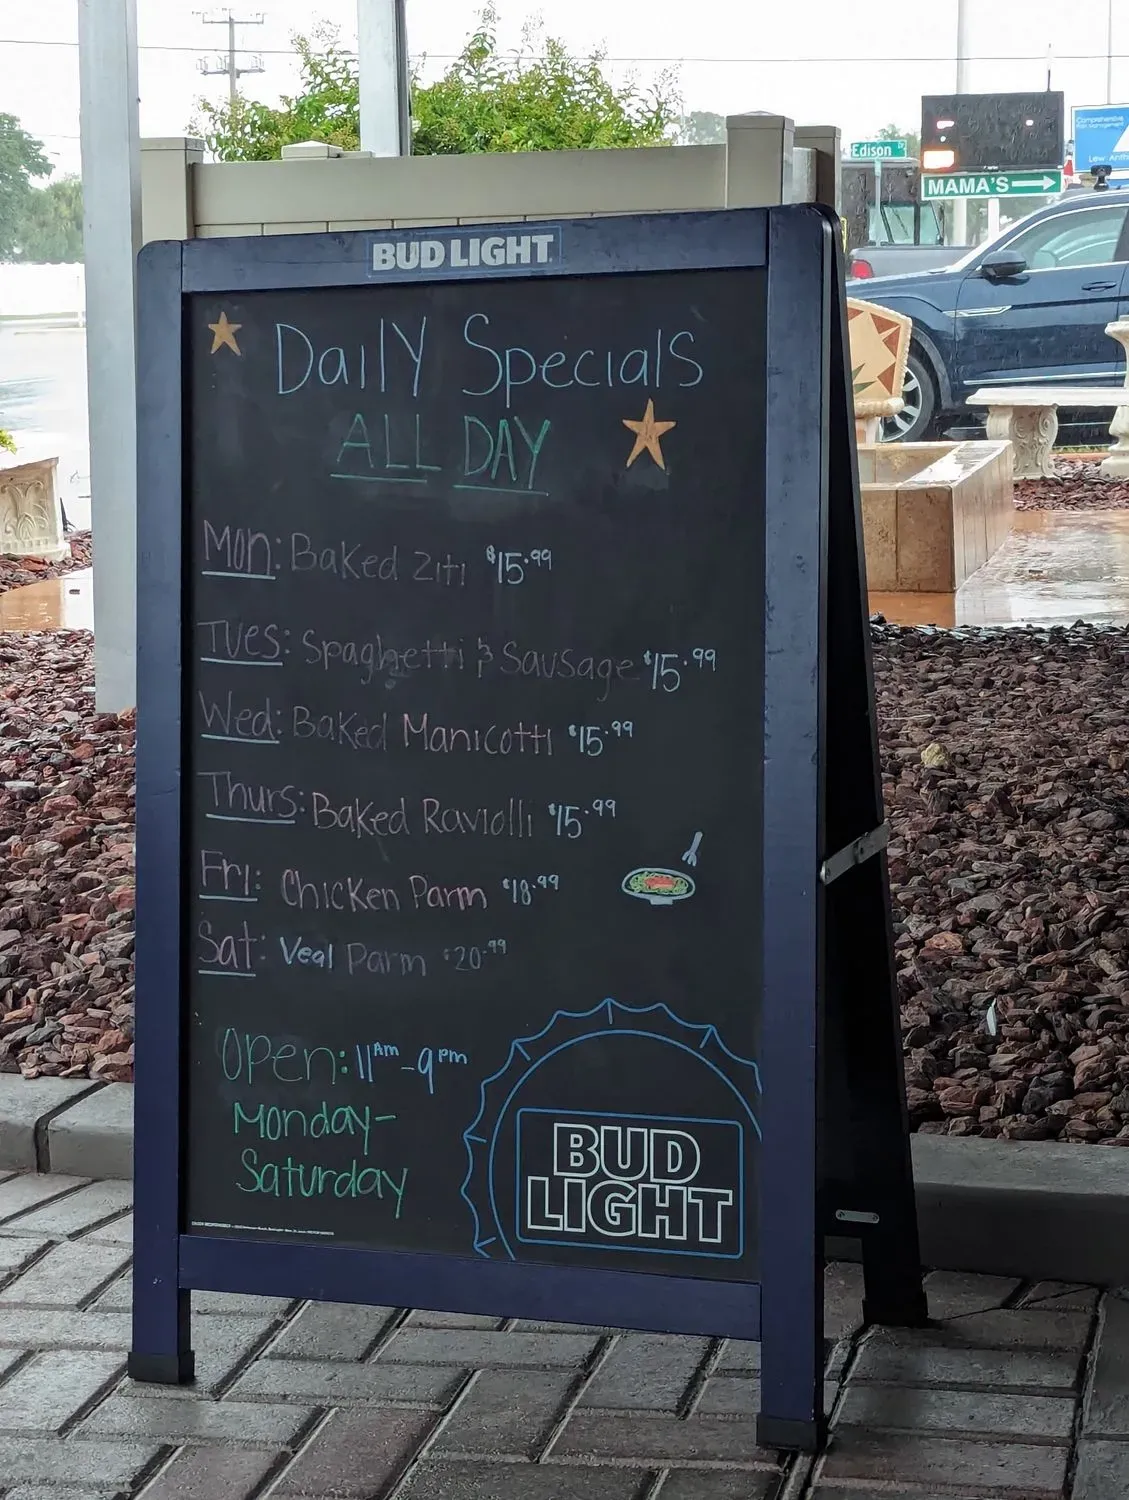 Edison Dr
MAMA'S
Comprehensive
Pain Management
BUD LIGHT
Daily Specials
ALL DAY
Mon: Baked Ziti $15.99
Tues: Spaghetti & Sausage $15.99
Wed: Baked Manicotti $15.99
Thurs: Baked Raviolli $15.99
Fri: Chicken Parm $18.99
Sat: Veal Parm $20.99
Open: 11 Am - 9 pm
Monday-
Saturday
BUD
LIGHT